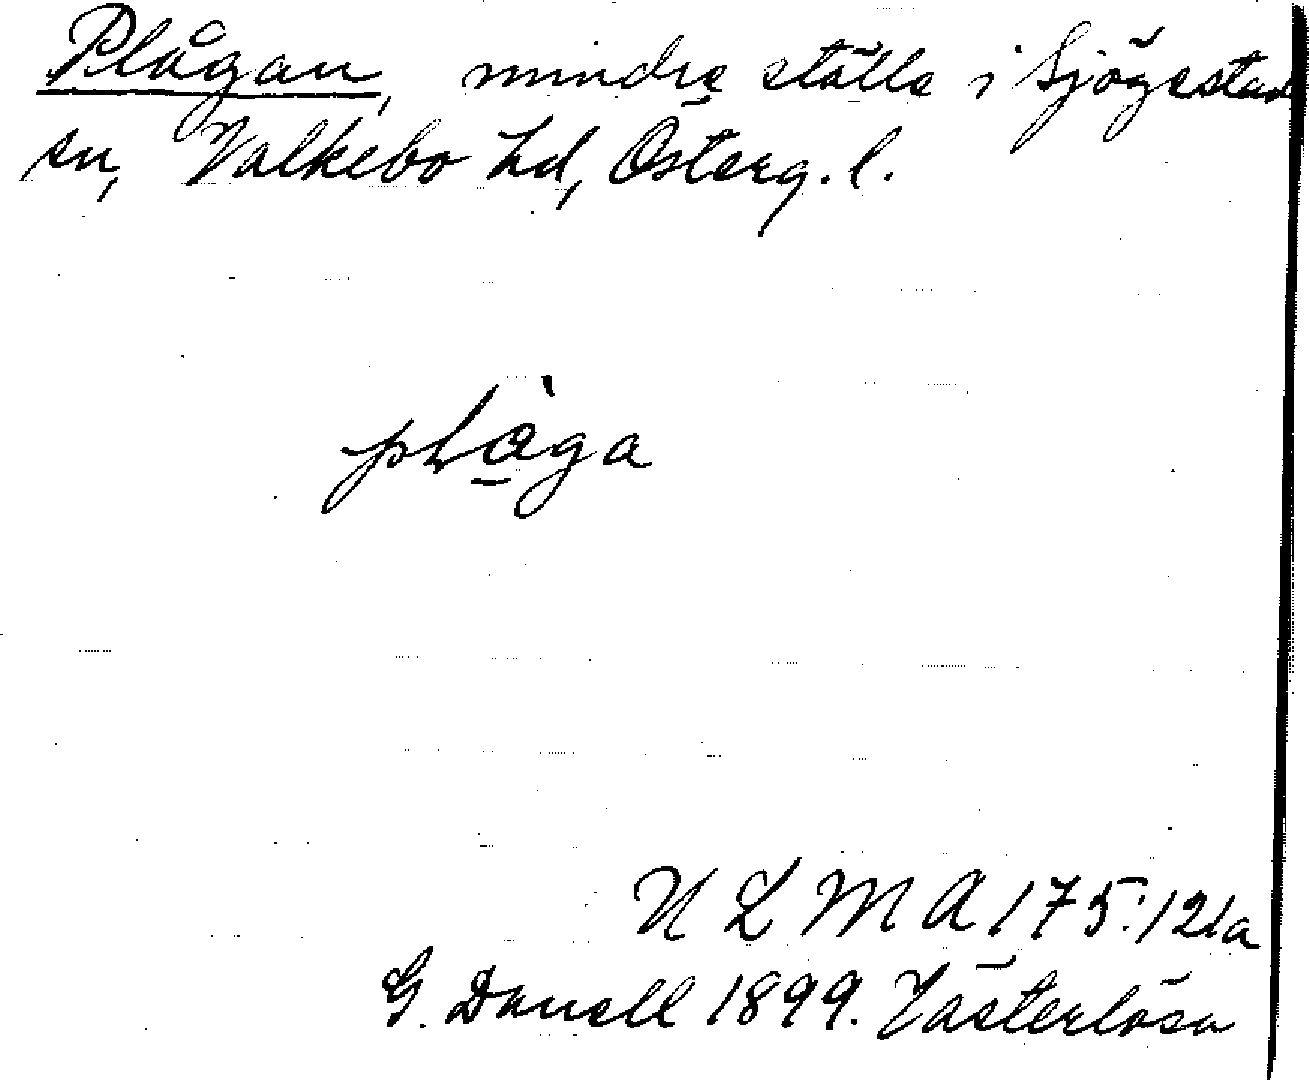 Plågan, mindre ställe i Sjögestad
sn, Valkebo hd, Österg. l.
plåga
ULMA 175:121a
G. Danell 1899. Västerlösa